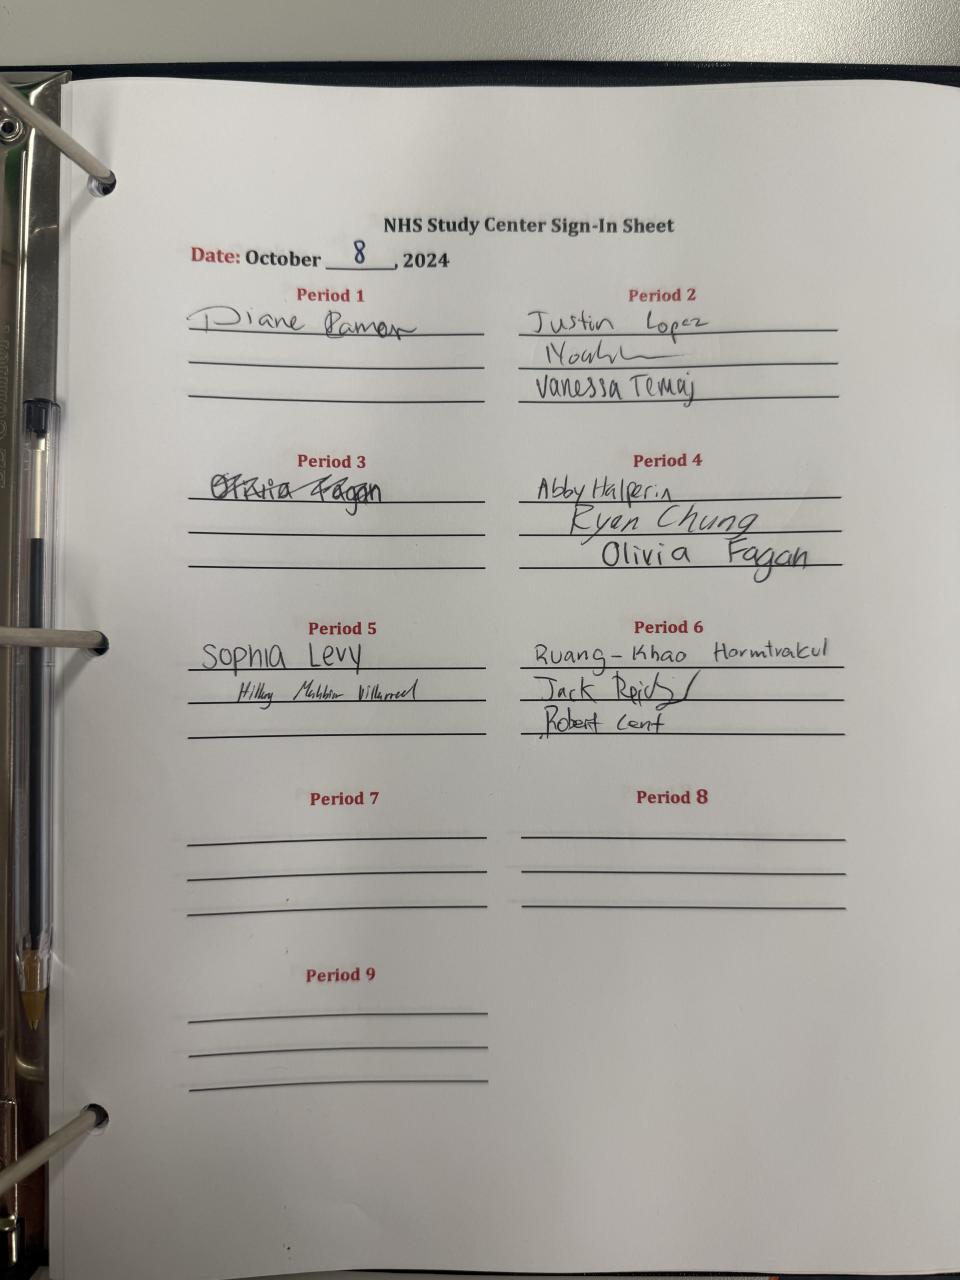 NHS Study Center Sign-In Sheet
Date: October 8, 2024
Period 1
Diane Ramos
Period 2
Justin Lopez
Noah
Vanessa Temaj
Period 3
Olivia Fagan
Period 4
Abby Halperin
Ryan Chung
Olivia Fagan
Period 5
Sophia Levy
Hillary Villarreal
Period 6
Ruang-Khao Hormtrakul
Jack
Robert Cent
Period 7
Period 8
Period 9